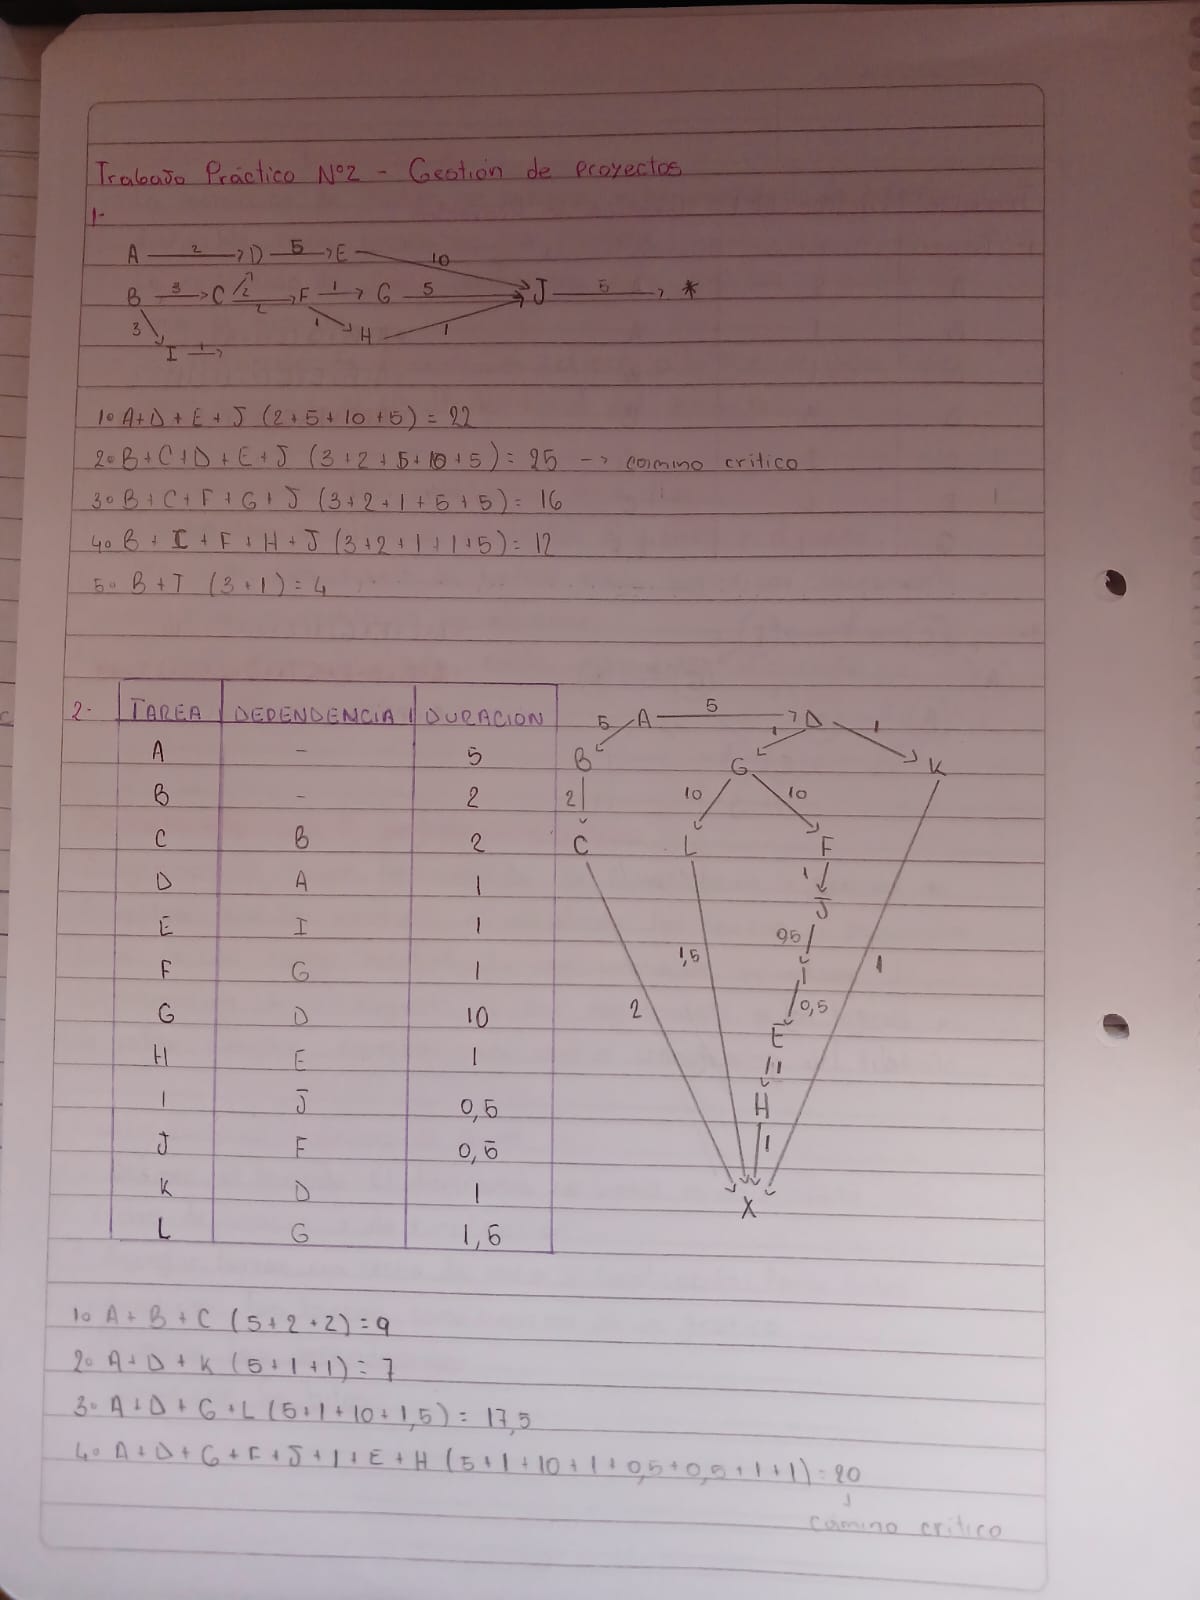 Trabajo Práctico N°2 - Gestión de proyectos
1-
A 2 D 5 E 10
B 3 C 2 2 F 1 G 5 J 5 *
3 1 H 1
I 1
1o A+D+E+J (2+5+10+5) = 22
2o B+C+D+E+J (3+2+5+10+5) = 25 -> camino critico
3o B+C+F+G+J (3+2+1+5+5) = 16
4o B+C+F+H+J (3+2+1+1+5) = 12
5o B+I (3+1) = 4
2- TAREA DEPENDENCIA DURACION
A - 5
B - 2
C B 2
D A 1
E I 1
F G 1
G D 10
H E 1
I J 0,5
J F 0,5
K D 1
L G 1,5
5 A 5 D 1
B G 1 K
2 10 10
C L F
1
J
1,5 0,5 1
I
2 0,5
E
1
H
1
X
1o A+B+C (5+2+2) = 9
2o A+D+K (5+1+1) = 7
3o A+D+G+L (5+1+10+1,5) = 17,5
4o A+D+G+F+J+I+E+H (5+1+10+1+0,5+0,5+1+1) = 20
camino critico